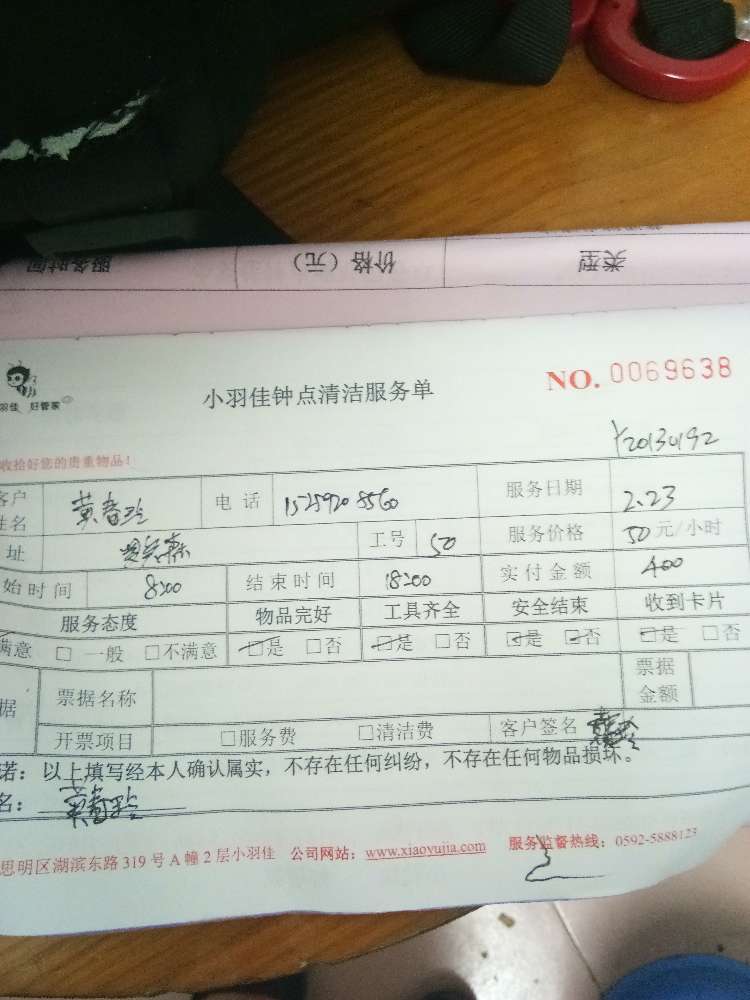 服务时间 价格（元） 类型
羽佳 好管家
小羽佳钟点清洁服务单
NO. 0069638
Y20130192
收拾好您的贵重物品！
客户姓名 黄春玲 电话 15259208560 服务日期 2.23
址 工号 50 服务价格 50元/小时
始时间 8:00 结束时间 18:00 实付金额 400
服务态度 物品完好 工具齐全 安全结束 收到卡片
满意 □ 一般 □不满意 □是 □否 □是 □否 □是 □否 □是 □否
据 票据名称 票据金额
开票项目 □服务费 □清洁费 客户签名
诺：以上填写经本人确认属实，不存在任何纠纷，不存在任何物品损坏。
名：黄春玲
思明区湖滨东路319号A幢2层小羽佳 公司网站：www.xiaoyujia.com 服务监督热线：0592-5888123